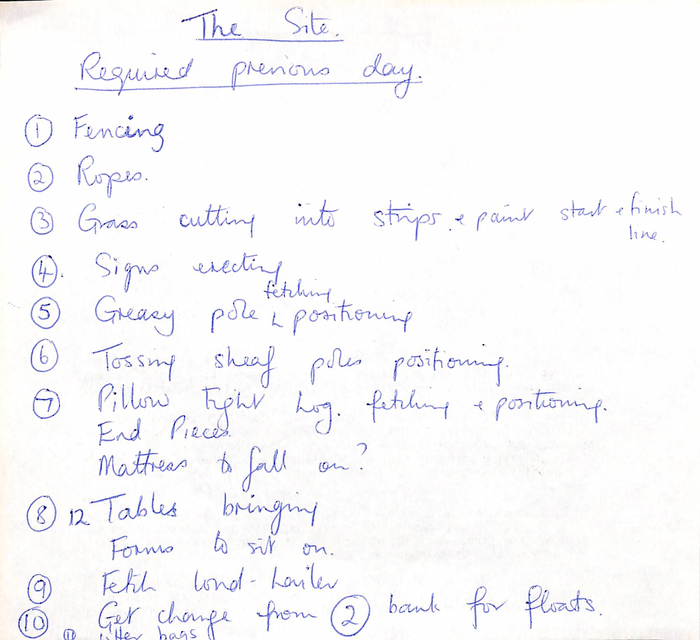 The Site.
Required previous day.
① Fencing
② Ropes.
③ Grass cutting into strips. + paint start + finish
line.
④. Signs erecting
fetching
⑤ Greasy pole L positioning
⑥ Tossing sheaf poles positioning.
⑦ Pillow Fight Log. fetching + positioning.
End Pieces.
Mattress to fall on?
⑧ 12 Tables bringing
Forms to sit on.
⑨ Fetch loud-hailer
⑩ Get change from ② bank for floats.
⑪ litter bags